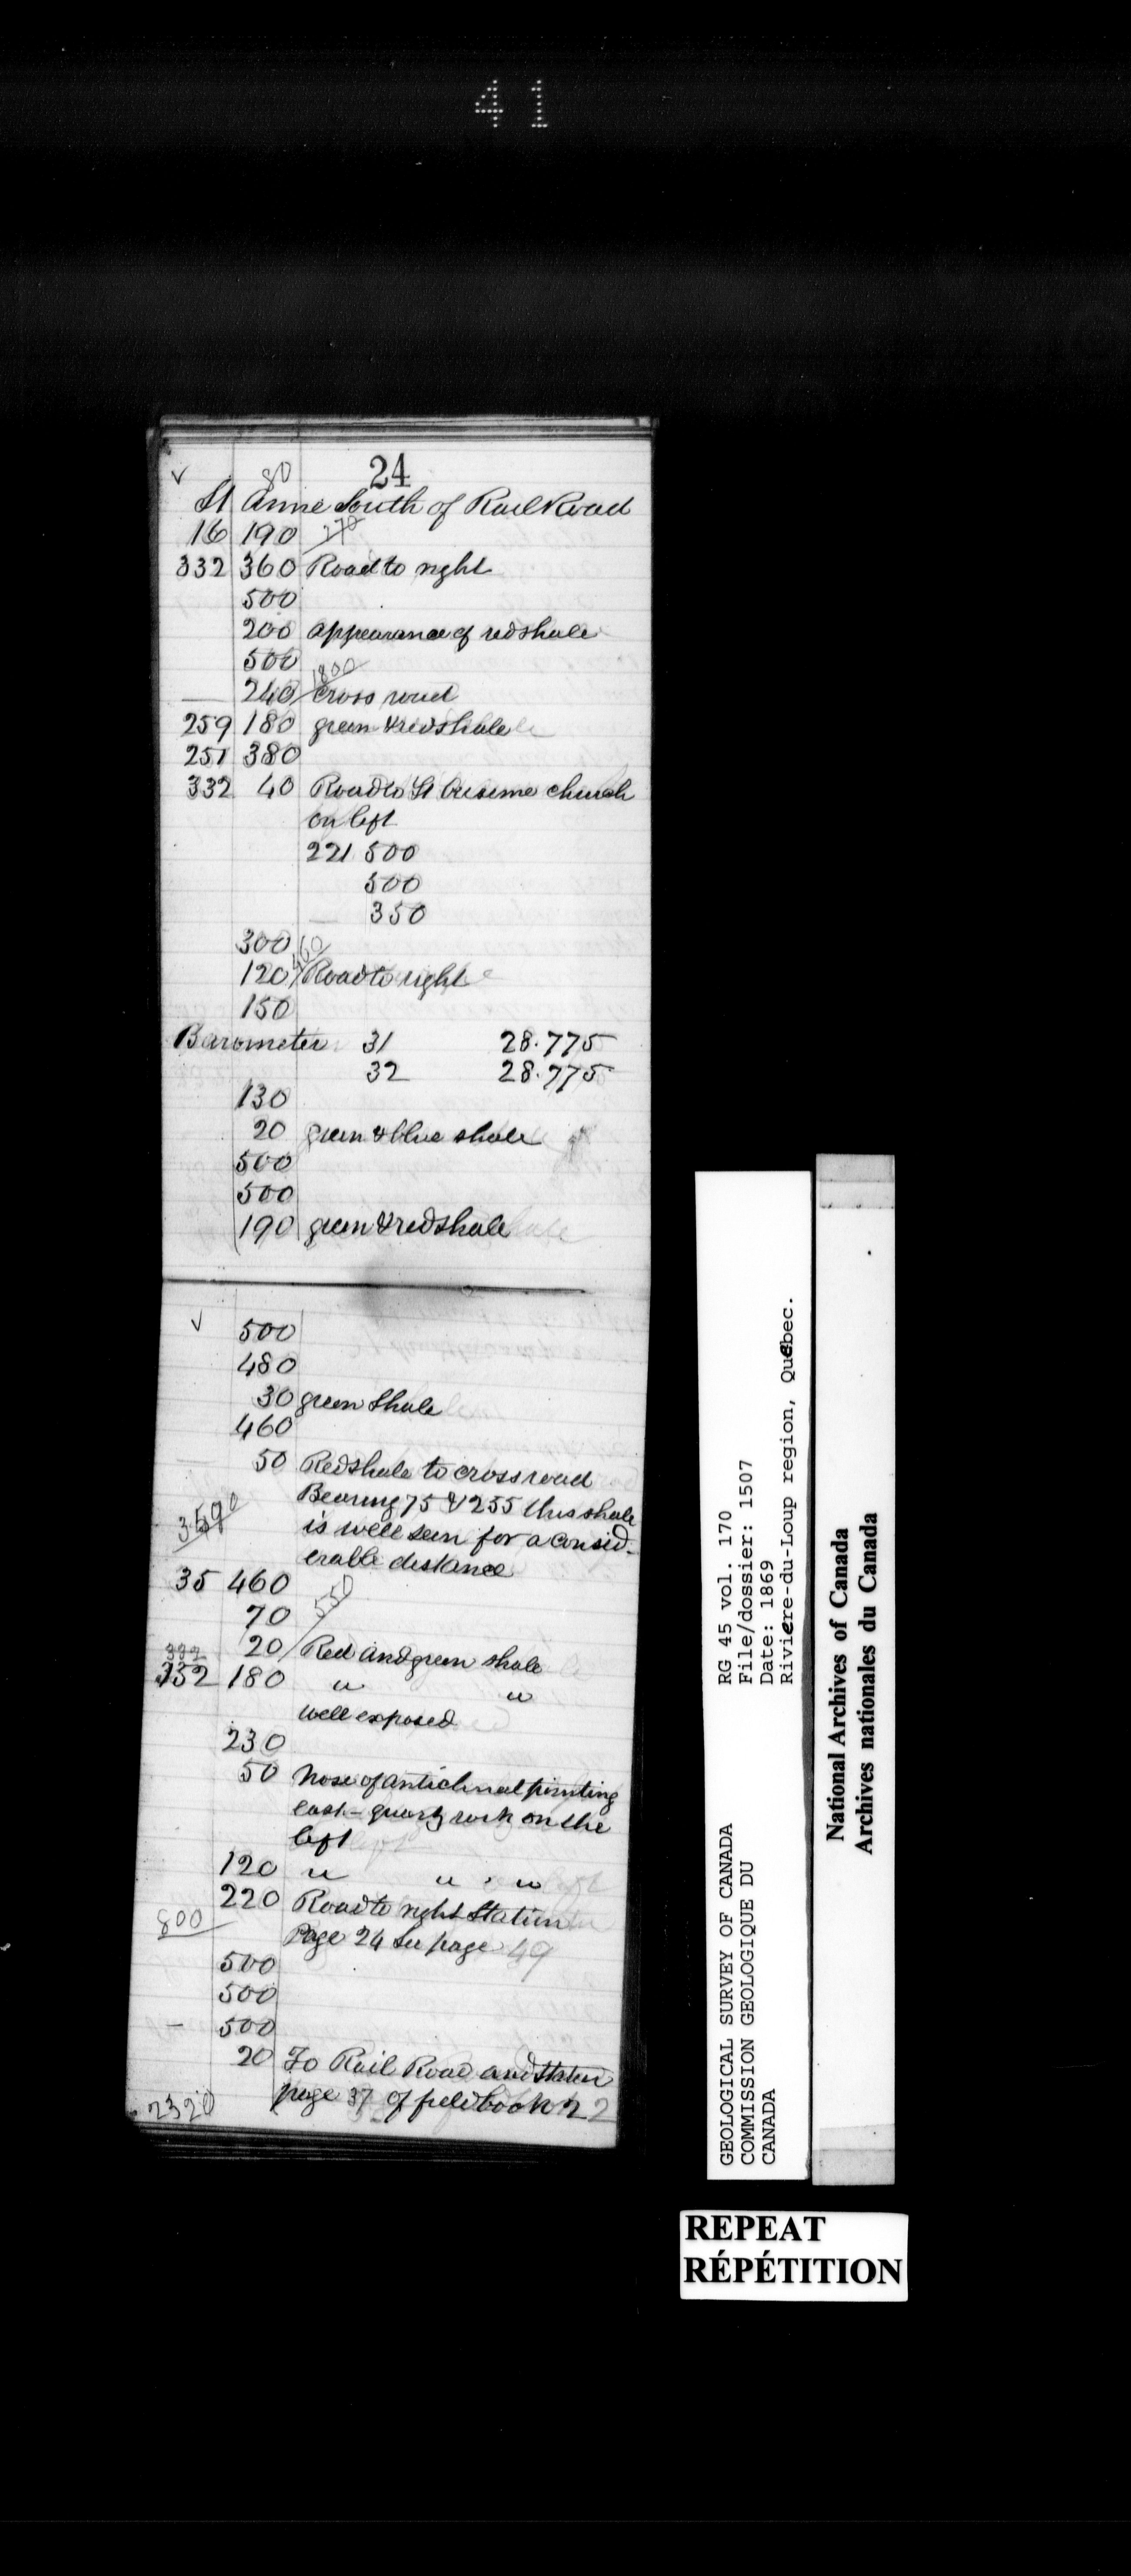 41
24
80
St Anne South of Rail Road
16 190 270
332 360 Road to right
500
200 appearance of red shale
500 1800
240 cross road
259 180 green & red shale
251 380
332 40 Road to St Onesime church
on left
221 500
500
350
300 460
120 Road to right
150
Barometer 31 28.775
32 28.775
130
20 green & blue shale
500
500
190 green & red shale
500
480
30 green Shale
460
50 Red shale to cross road
Bearing 75 & 255 this shale
3590 is well seen for a consid-
erable distance
35 460
70 550
20 Red and green shale
332
332 180 " "
well exposed
230
50 Nose of anticlinal pointing
east - quartz rock on the
left
120 " " "
220 Road to right Station
800 Page 24 See page 49
500
500
500
20 To Rail Road and Station
2320 page 37 of field book 22
GEOLOGICAL SURVEY OF CANADA
COMMISSION GEOLOGIQUE DU
CANADA
RG 45 vol. 170
File/dossier: 1507
Date: 1869
Rivière-du-Loup region, Québec.
National Archives of Canada
Archives nationales du Canada
REPEAT
RÉPÉTITION